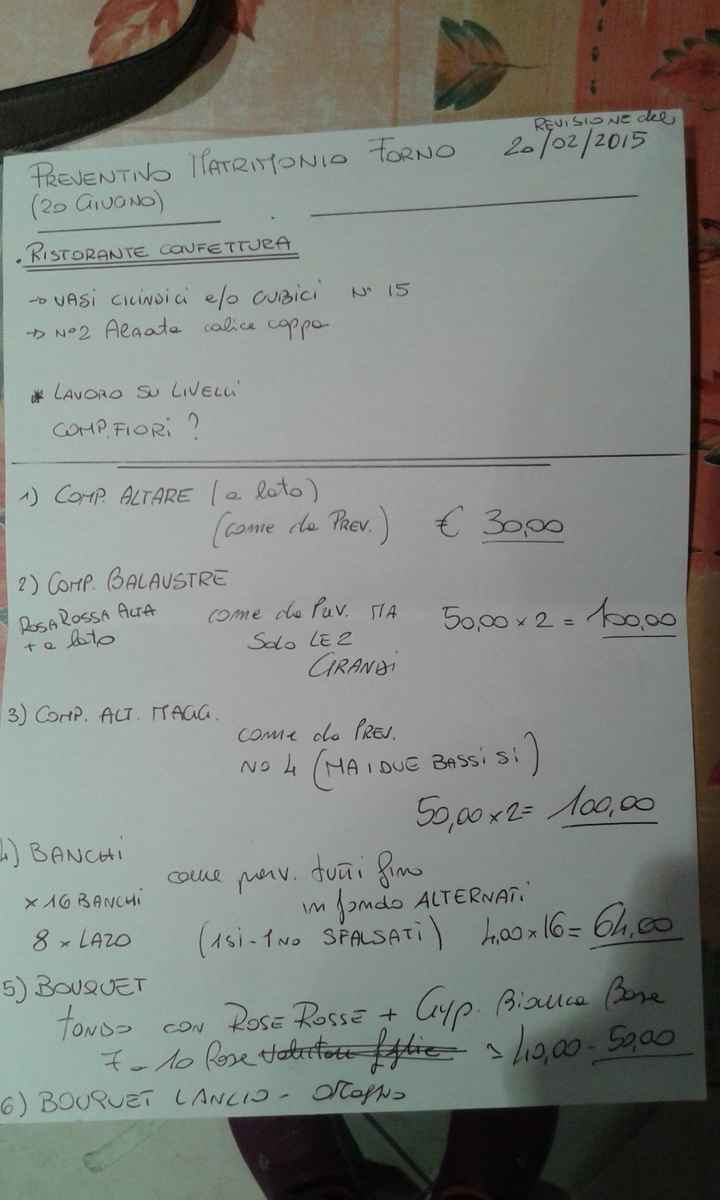 REVISIONE del
PREVENTIVO MATRIMONIO FORNO 20/02/2015
(20 GIUGNO)
. RISTORANTE CONFETTURA
→ VASI CILINDICI e/o CUBICI N° 15
→ N°2 Alzate calice coppa
* LAVORO SU LIVELLI
COMP. FIORI ?
1) COMP. ALTARE (a lato)
(come da PREV.) € 30,00
2) COMP. BALAUSTRE
ROSA ROSSA ALTA come da Prev. MA 50,00 x 2 = 100,00
+ a lato SOLO LE 2
GRANDI
3) COMP. ALT. MAGG.
come da PREV.
NO 4 (MA I DUE BASSI SI)
50,00 x 2 = 100,00
4) BANCHI
come prev. tutti fino
x 16 BANCHI in fondo ALTERNATI
8 x LATO (1 SI - 1 NO SFALSATI) 4,00 x 16 = 64,00
5) BOUQUET
TONDO CON ROSE ROSSE + Gyp. Bianca Base
7 - 10 Rose 40,00 - 50,00
6) BOUQUET LANCIO - OMAGGIO